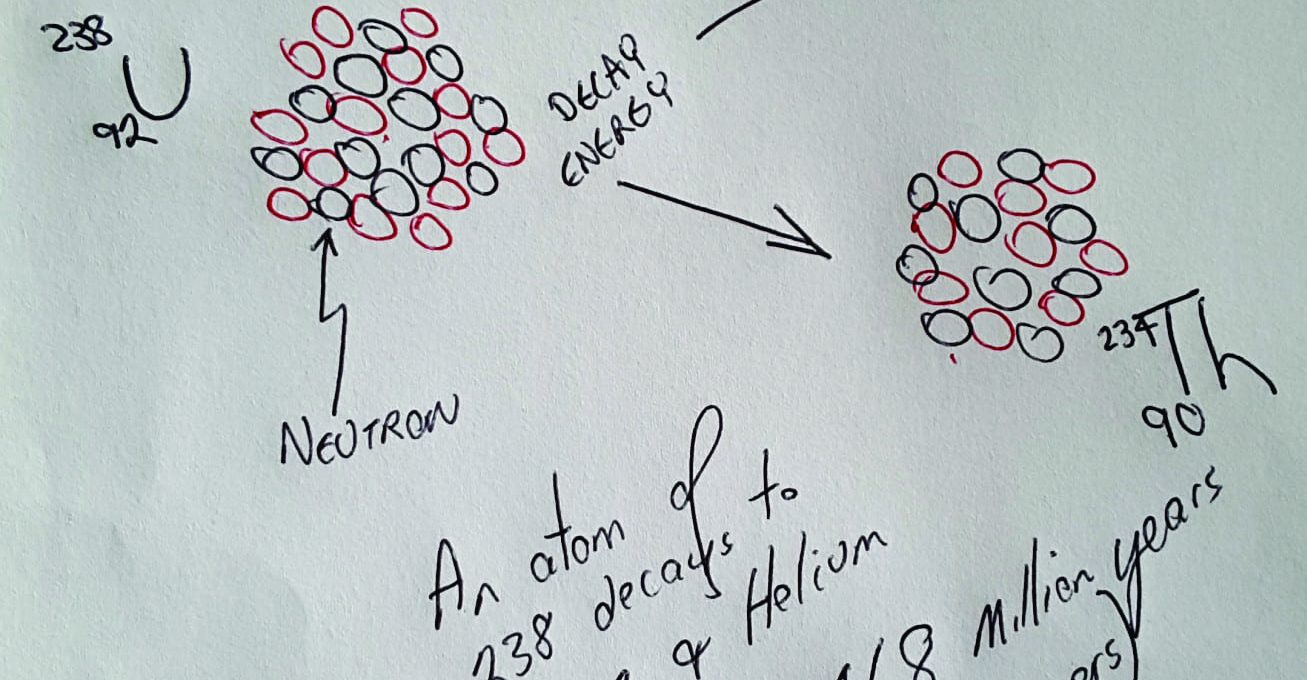 238
U
92
DECAY
ENERGY
NEUTRON
234
Th
90
An atom of
238 decays to
& Helium
8 Million years